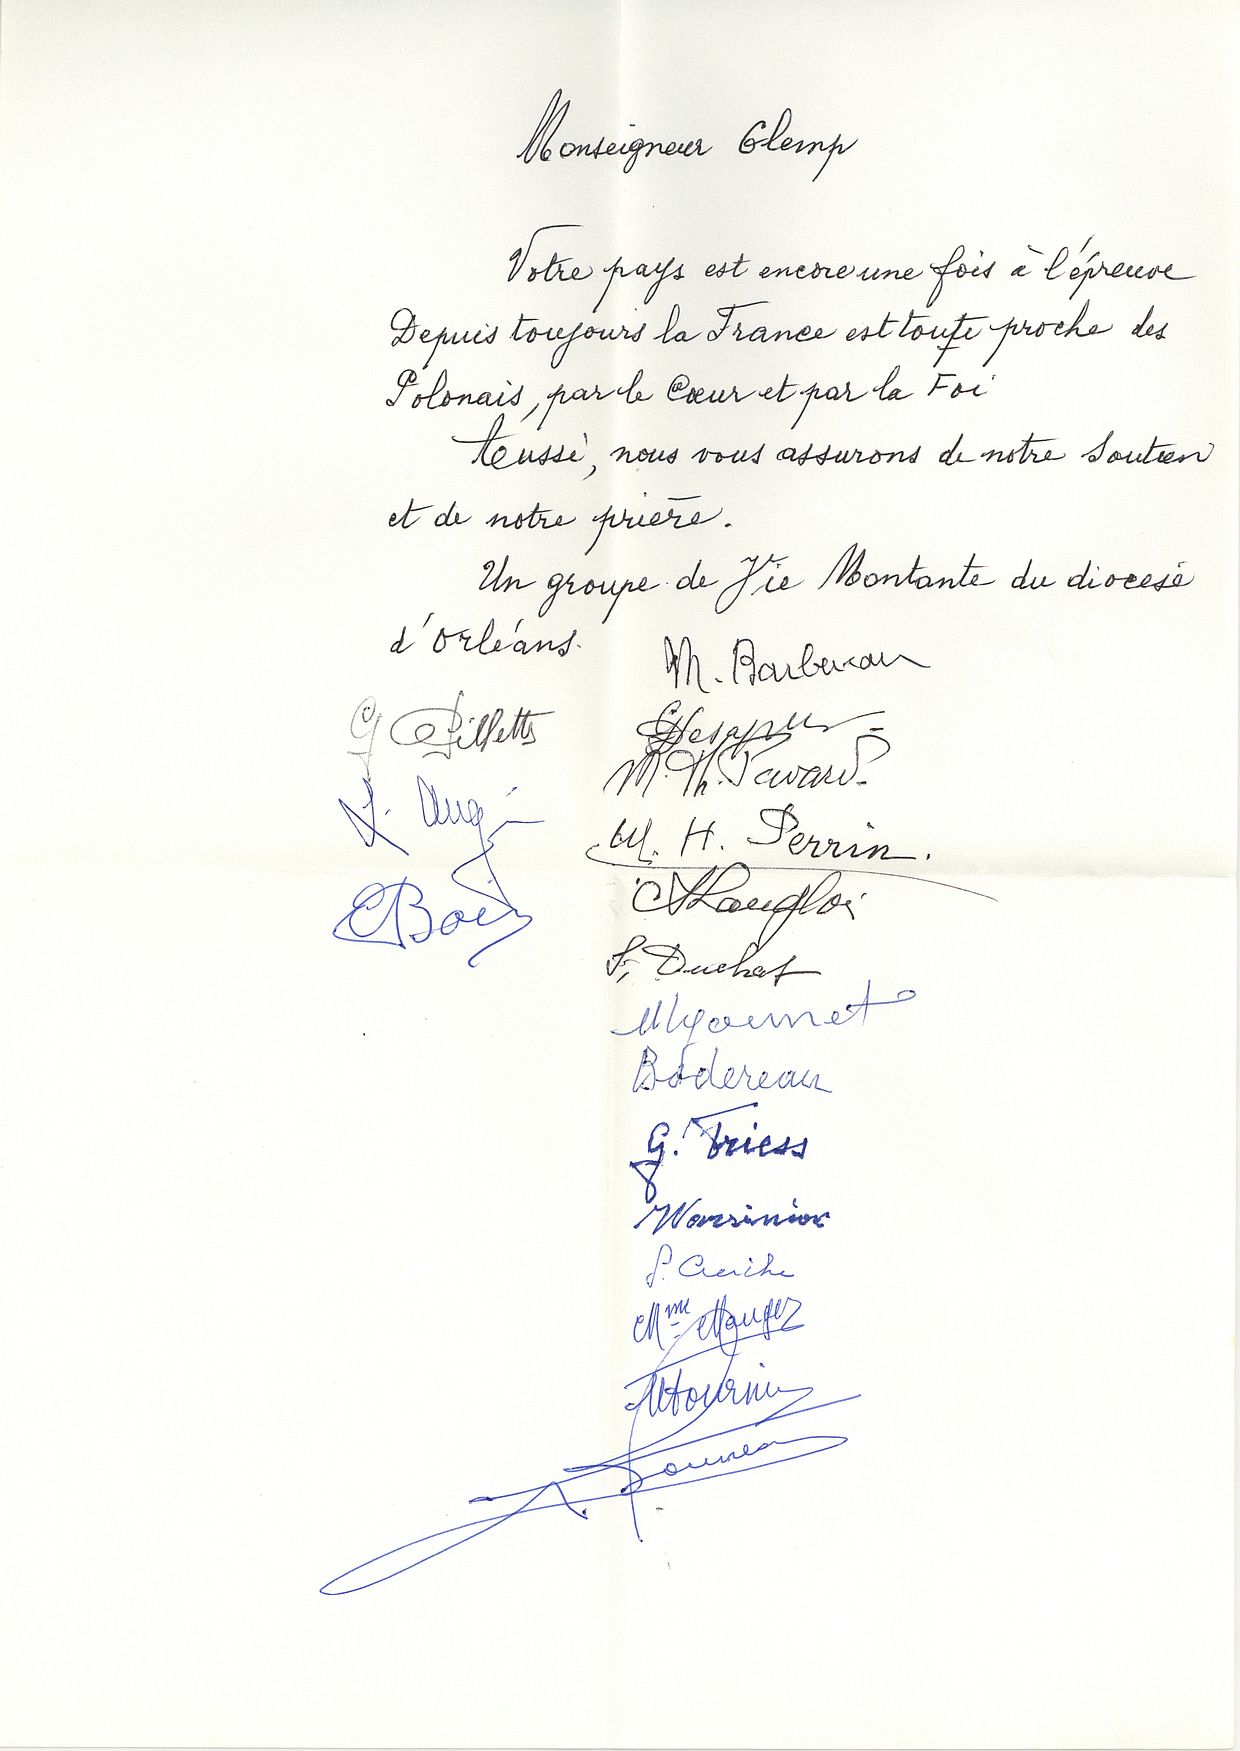 Monseigneur Glemp
Votre pays est encore une fois à l'épreuve
Depuis toujours la France est toute proche des
Polonais, par le Cœur et par la Foi
Aussi, nous vous assurons de notre soutien
et de notre prière.
Un groupe de Vie Montante du diocèse
d'Orléans.
M. Barbereau
G
M. Th. Pavard
M. H. Perrin.
Langlois
Duchat
Bodereau
G. Triess
Mme Mauger